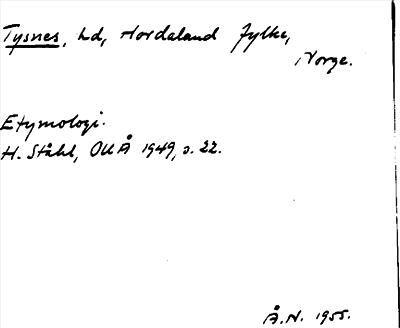 Tysnes, hd, Hordaland fylke,
Norge.
Etymologi.
H. Ståhl, OUÅ 1949, s. 22.
Å.N. 1955.